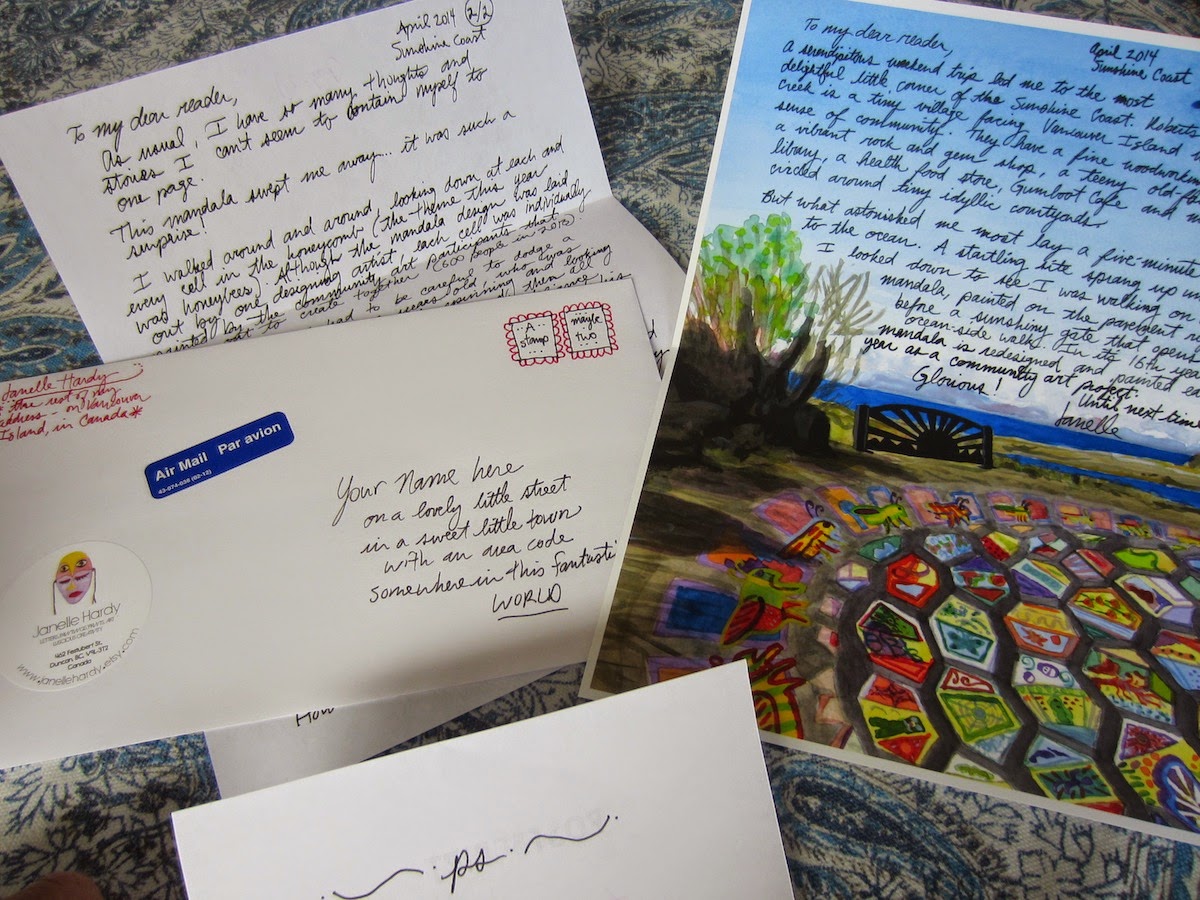 April 2014 2/2
Sunshine Coast
To my dear reader,
As usual, I have so many thoughts and
stories I can't seem to contain myself to
one page.
This mandala swept me away... it was such a
surprise!
I walked around and around, looking down at each and
every cell in the honeycomb (the theme this year
was honeybees). Although the mandala design was laid
out by one designing artist, each cell was individually
painted by the community art participants that
create together (600 people in 2013)
had to be careful to dodge a
years old who was looking
spinning and
How
Janelle Hardy
*the rest of my
address - on Vancouver
Island, in Canada*
A
stamp
maybe
two
Air Mail Par avion
43-074-038 (02-12)
Your Name here
on a lovely little street
in a sweet little town
with an area code
somewhere in this fantasti
WORLD
Janelle Hardy
462 Festubert St.
Duncan, BC V9L-3T2
Canada
www.janellehardy.etsy.com
To my dear reader,
April 2014
Sunshine Coast
A serendipitous weekend trip led me to the most
delightful little corner of the Sunshine Coast. Roberts
Creek is a tiny village facing Vancouver Island
sense of community. They have a fine woodworking
a vibrant rock and gem shop, a teeny old-
library, a health food store, Gumboot Cafe and
circled around tiny idyllic courtyards.
But what astonished me most lay a five-minute
to the ocean. A startling site sprang up
I looked down to see I was walking on
mandala, painted on the pavement
before a sunshiny gate that opens
ocean-side walk. In its 16th year
mandala is redesigned and painted ea
year as a community art project.
Glorious!
Until next time
Janelle
.ps.